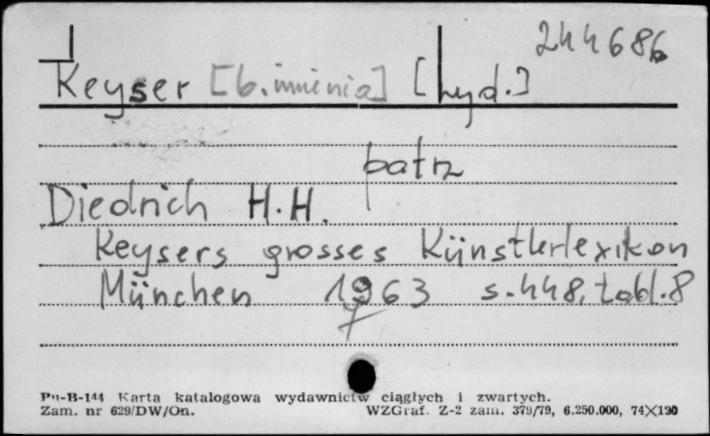 244686
Keyser [b. imienia] [wyd.]
patrz
Diedrich H.H.
Keysers grosses Künstlerlexikon
München 1963 s. 448, tabl. 8
Pu-B-144 Karta katalogowa wydawnictw ciągłych i zwartych.
Zam. nr 629/DW/On. WZGraf. Z-2 zam. 379/79, 6.250.000, 74X120